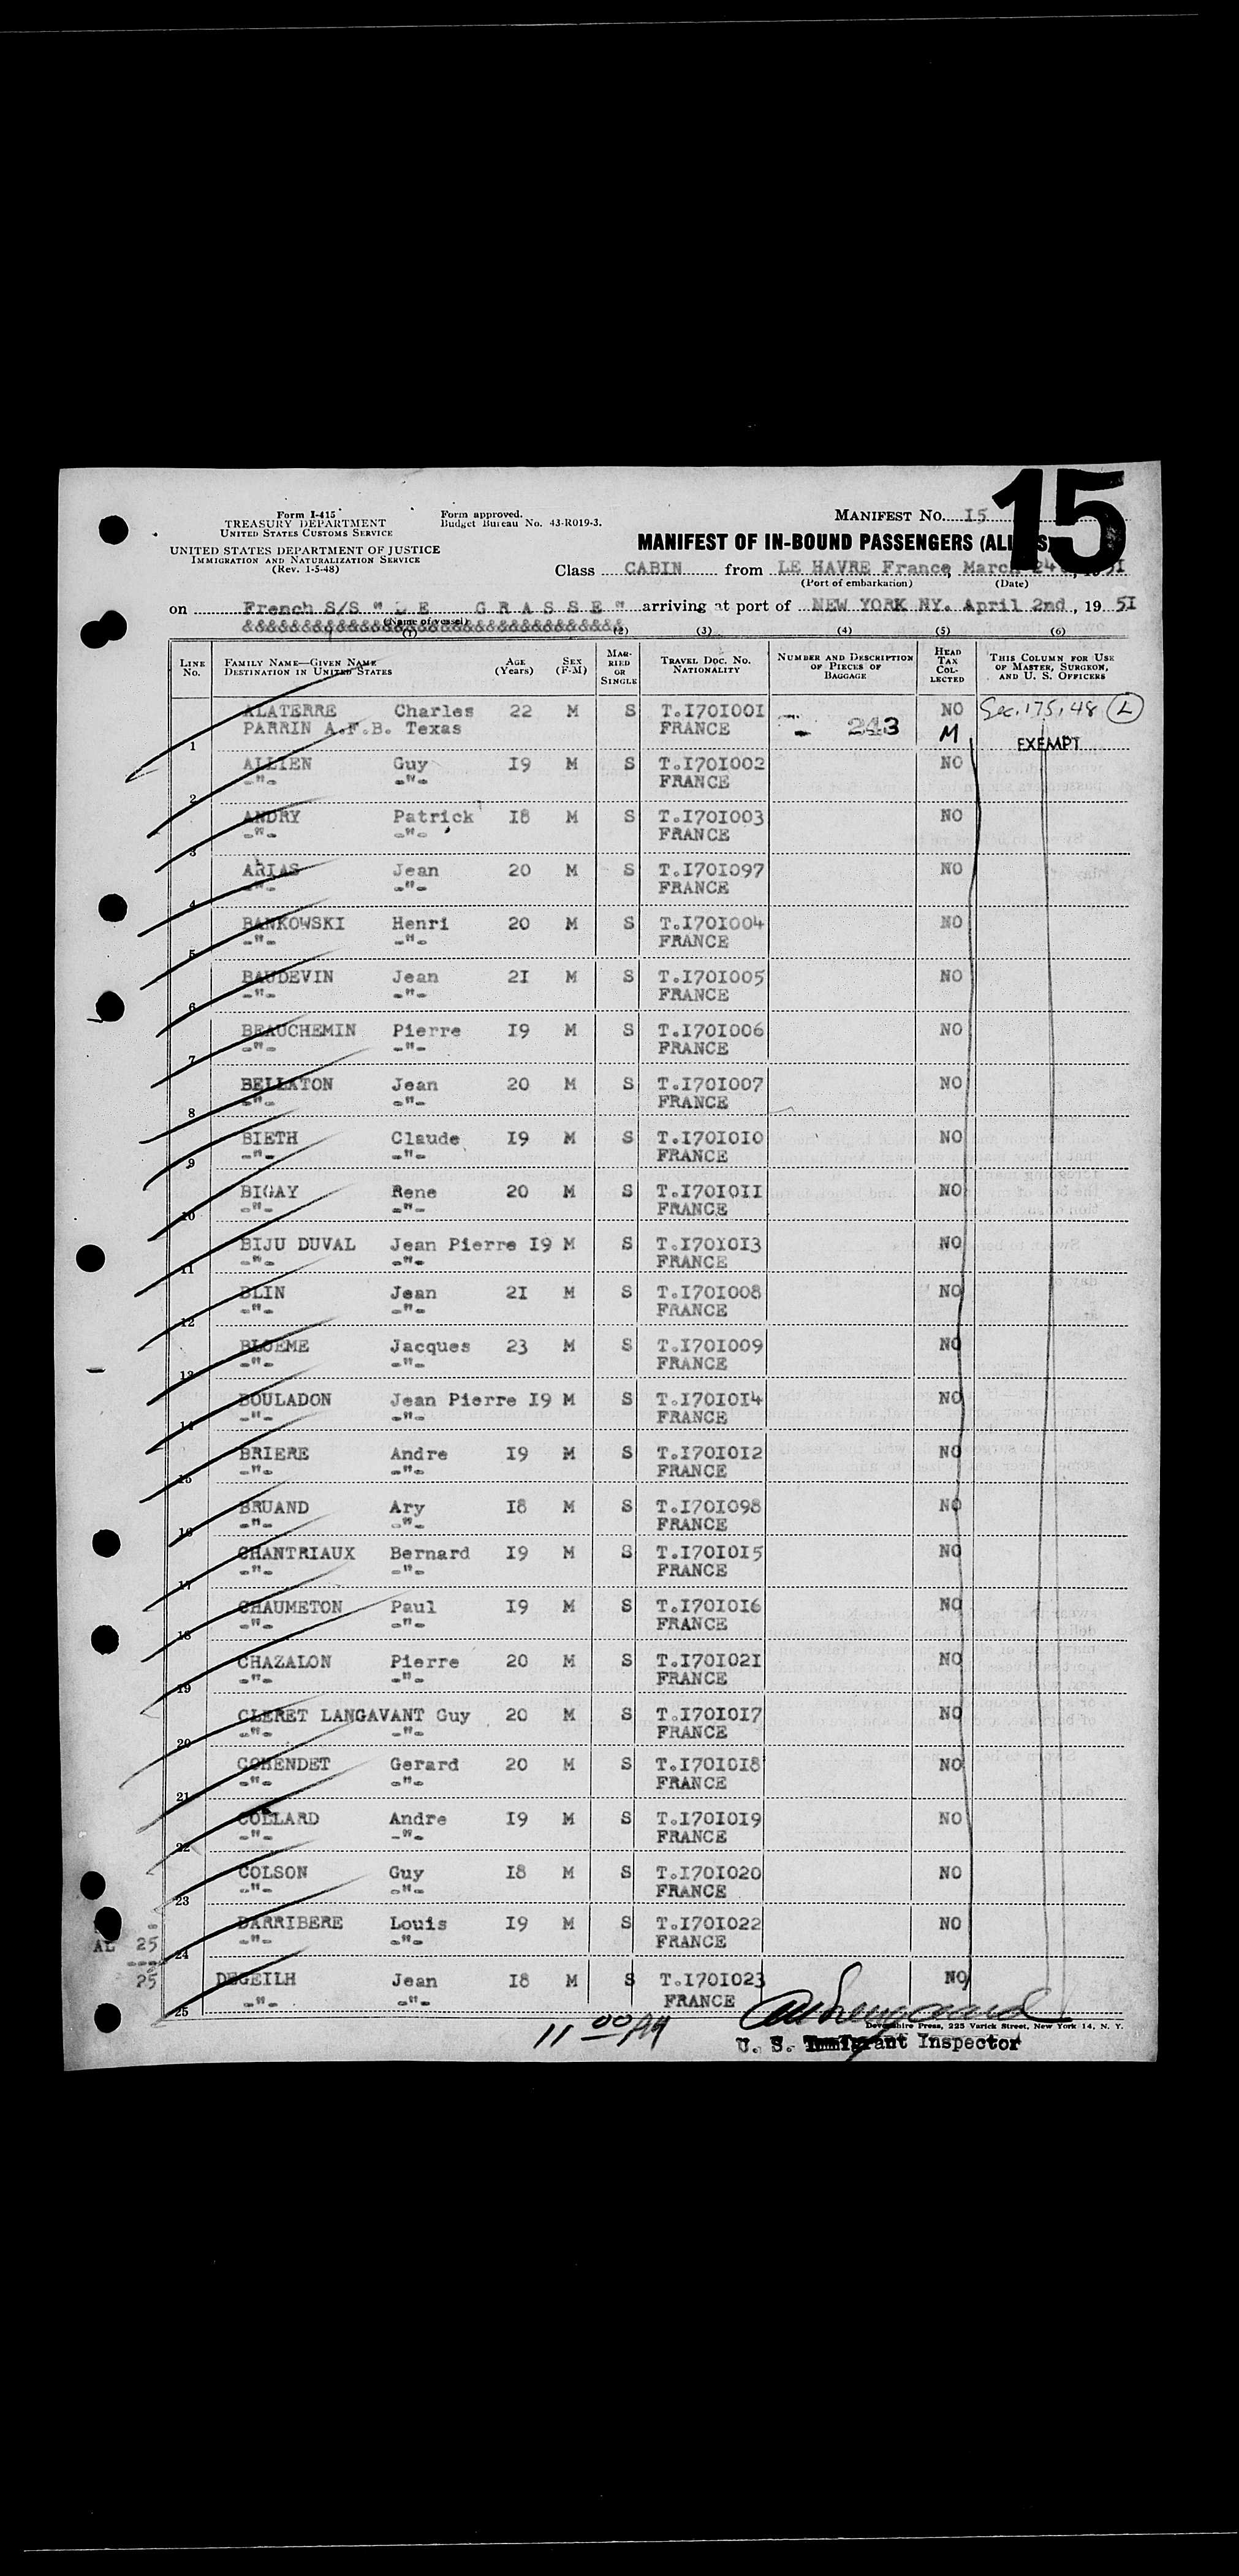 15
Form I-415
TREASURY DEPARTMENT
UNITED STATES CUSTOMS SERVICE
Form approved.
Budget Bureau No. 43-R019-3.
MANIFEST NO. I5
UNITED STATES DEPARTMENT OF JUSTICE
IMMIGRATION AND NATURALIZATION SERVICE
(Rev. 1-5-48)
MANIFEST OF IN-BOUND PASSENGERS
Class CABIN from LE HAVRE France, March
(Port of embarkation) (Date)
on French S/S " L E G R A S S E " arriving at port of NEW YORK NY. April 2nd, 19 5I
(Name of vessel)
(1) (2) (3) (4) (5) (6)
LINE No. FAMILY NAME—GIVEN NAME DESTINATION IN UNITED STATES AGE (Years) SEX (F-M) MARRIED OR SINGLE TRAVEL DOC. NO. NATIONALITY NUMBER AND DESCRIPTION OF PIECES OF BAGGAGE HEAD TAX COLLECTED THIS COLUMN FOR USE OF MASTER, SURGEON, AND U. S. OFFICERS
1 ALATERRE Charles 22 M S T.I70I00I NO Sec. 175.48 L
PARRIN A.F.B. Texas FRANCE - 243 M EXEMPT
2 ALLIEN Guy I9 M S T.I70I002 NO
-"- -"- FRANCE
3 ANDRY Patrick I8 M S T.I70I003 NO
-"- -"- FRANCE
4 ARIAS Jean 20 M S T.I70I097 NO
-"- -"- FRANCE
5 BANKOWSKI Henri 20 M S T.I70I004 NO
-"- -"- FRANCE
6 BAUDEVIN Jean 2I M S T.I70I005 NO
-"- -"- FRANCE
7 BEAUCHEMIN Pierre I9 M S T.I70I006 NO
-"- -"- FRANCE
8 BELLATON Jean 20 M S T.I70I007 NO
-"- -"- FRANCE
9 BIETH Claude I9 M S T.I70I0I0 NO
-"- -"- FRANCE
10 BIGAY Rene 20 M S T.I70I0II NO
-"- -"- FRANCE
11 BIJU DUVAL Jean Pierre I9 M S T.I70I0I3 NO
-"- -"- FRANCE
12 BLIN Jean 2I M S T.I70I008 NO
-"- -"- FRANCE
13 BLOEME Jacques 23 M S T.I70I009 NO
-"- -"- FRANCE
14 BOULADON Jean Pierre I9 M S T.I70I0I4 NO
-"- -"- FRANCE
15 BRIERE Andre I9 M S T.I70I0I2 NO
-"- -"- FRANCE
16 BRUAND Ary I8 M S T.I70I098 NO
-"- -"- FRANCE
17 CHANTRIAUX Bernard I9 M S T.I70I0I5 NO
-"- -"- FRANCE
18 CHAUMETON Paul I9 M S T.I70I0I6 NO
-"- -"- FRANCE
19 CHAZALON Pierre 20 M S T.I70I02I NO
-"- -"- FRANCE
20 CLERET LANGAVANT Guy 20 M S T.I70I0I7 NO
-"- -"- FRANCE
21 COHENDET Gerard 20 M S T.I70I0I8 NO
-"- -"- FRANCE
22 COLLARD Andre I9 M S T.I70I0I9 NO
-"- -"- FRANCE
23 COLSON Guy I8 M S T.I70I020 NO
-"- -"- FRANCE
24 DARRIBERE Louis I9 M S T.I70I022 NO
-"- -"- FRANCE
AL 25
25
25 DEGEILH Jean I8 M S T.I70I023 NO
-"- -"- FRANCE
Devonshire Press, 225 Varick Street, New York 14, N. Y.
11 00 AM
U. S. Immigrant Inspector